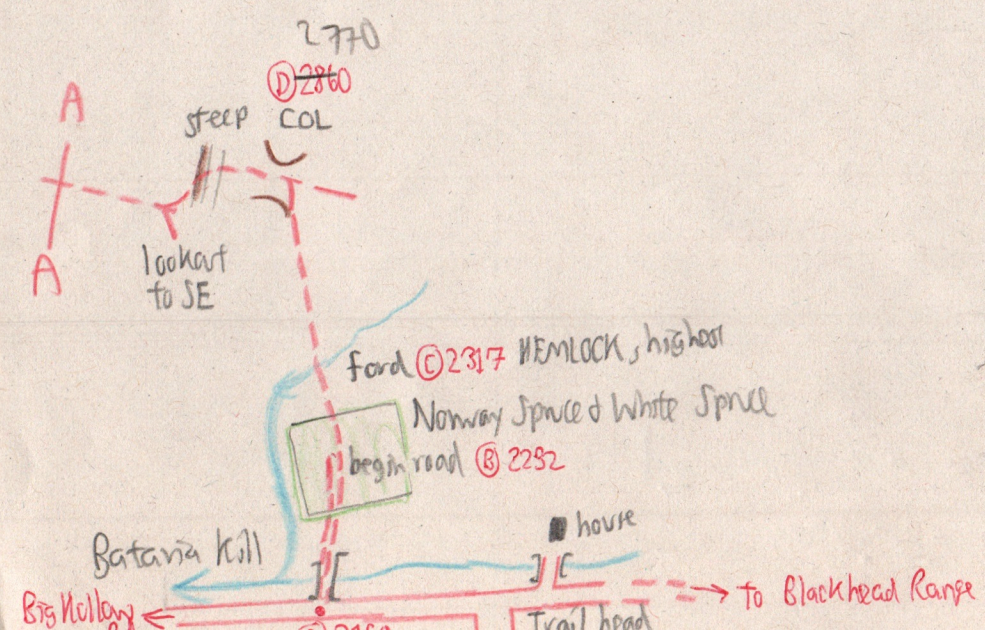 2770
Ⓓ 2860
A
steep COL
A
lookout
to SE
ford Ⓒ 2317 HEMLOCK, highest
Norway Spruce & White Spruce
begin road Ⓑ 2292
house
Batavia Kill
to Blackhead Range
Big Hollow
Trail head